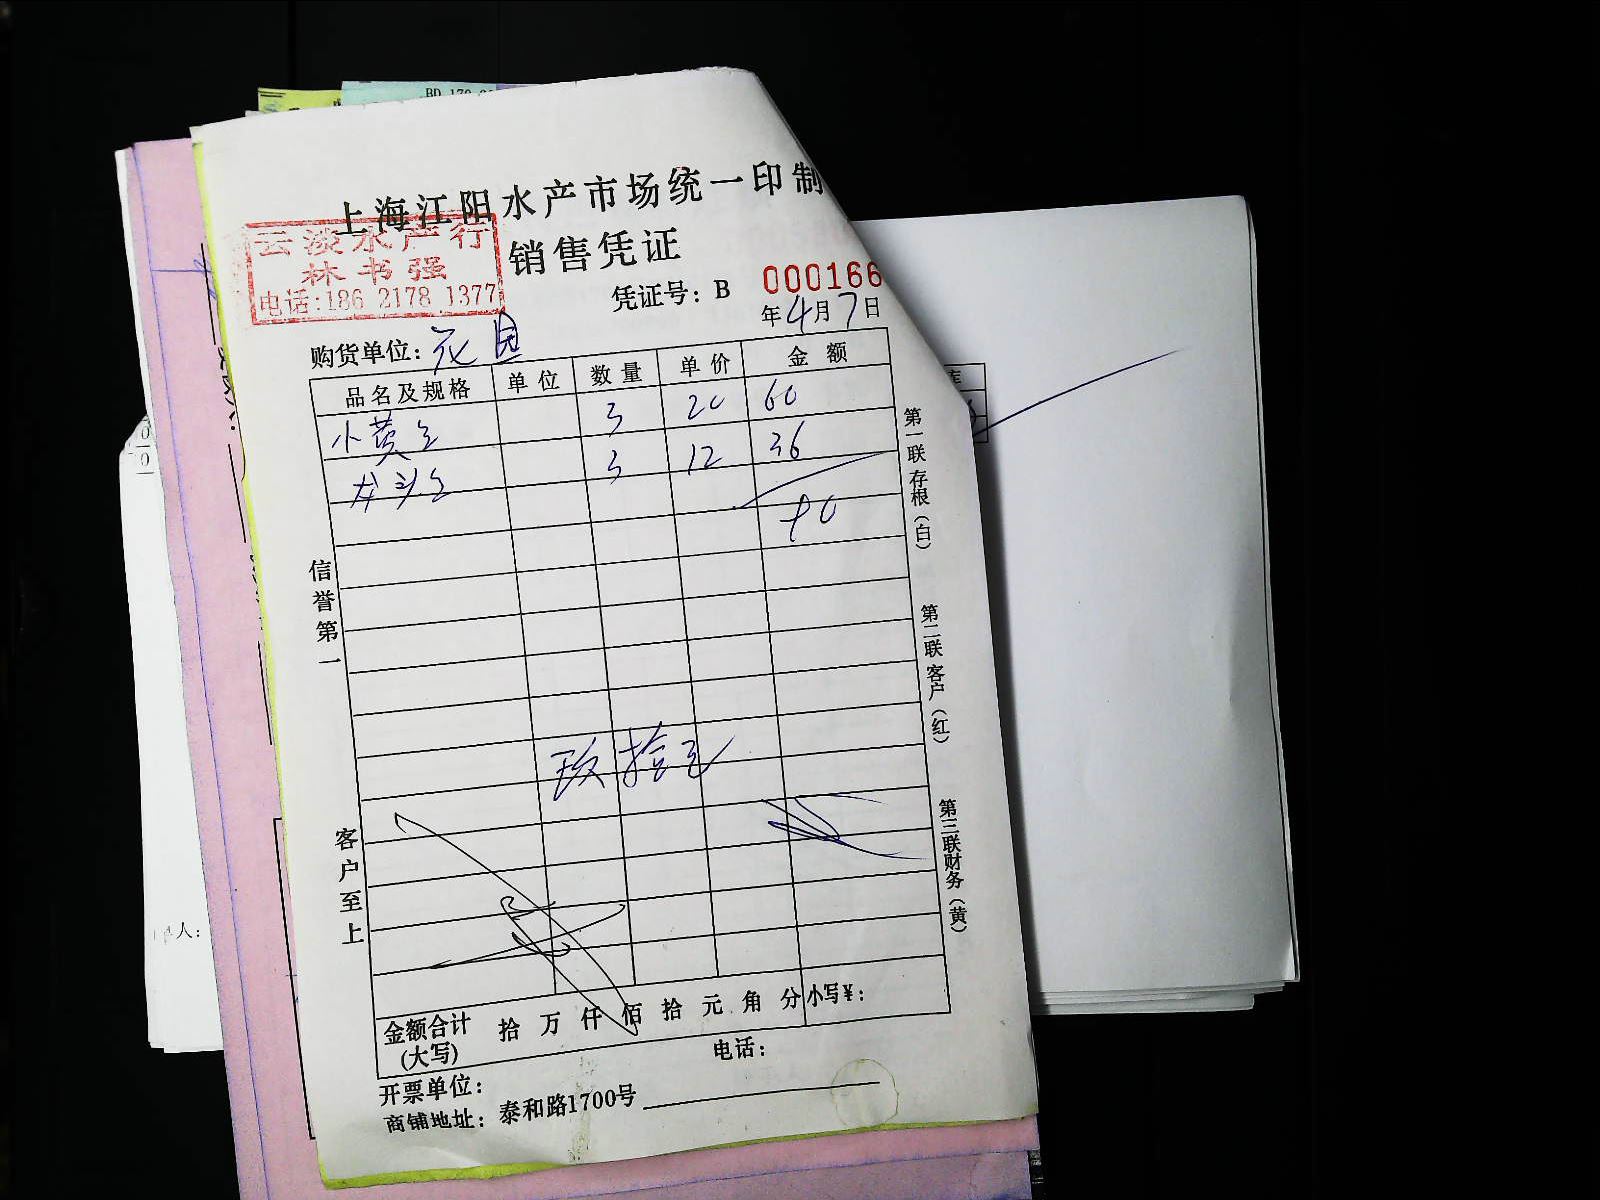 BD 170
上海江阳水产市场统一印制
云淡水产行
林书强
电话:186 2178 1377
销售凭证
凭证号: B 000166
年4月7日
购货单位: 花园
品名及规格 单位 数量 单价 金额
小黄鱼 3 20 60
龙头鱼 3 12 36
90
玖拾元
信誉第一
客户至上
第一联存根(白)
第二联客户(红)
第三联财务(黄)
金额合计(大写) 拾 万 仟 佰 拾 元 角 分 小写¥:
开票单位: 电话:
商铺地址: 泰和路1700号
库
人: